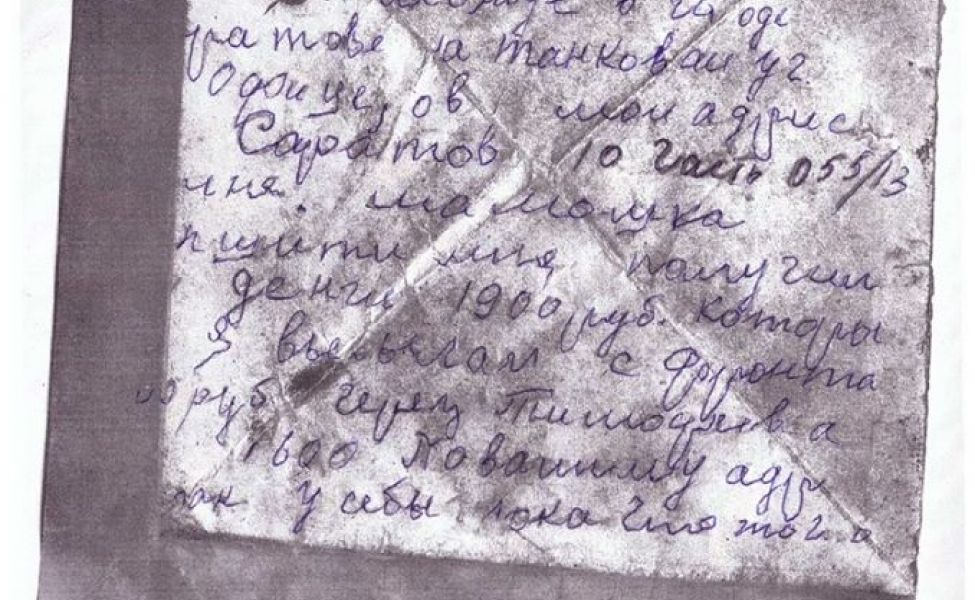 в городе
ратове на танковаи уг.
Офицеров мои адрис
Саратов 10 часть 055/13
мня. мамошка
пишити мня получил
денги 1900 руб. которы
я высылал с фронта
руб. через Тимофиева
1600 по вашиму адри
так у себы пока что того